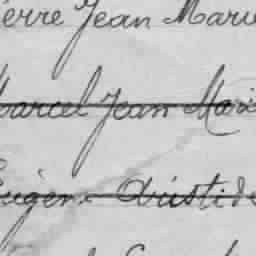 ierre Jean Marie
Marcel Jean Marie
Eugène Aristide